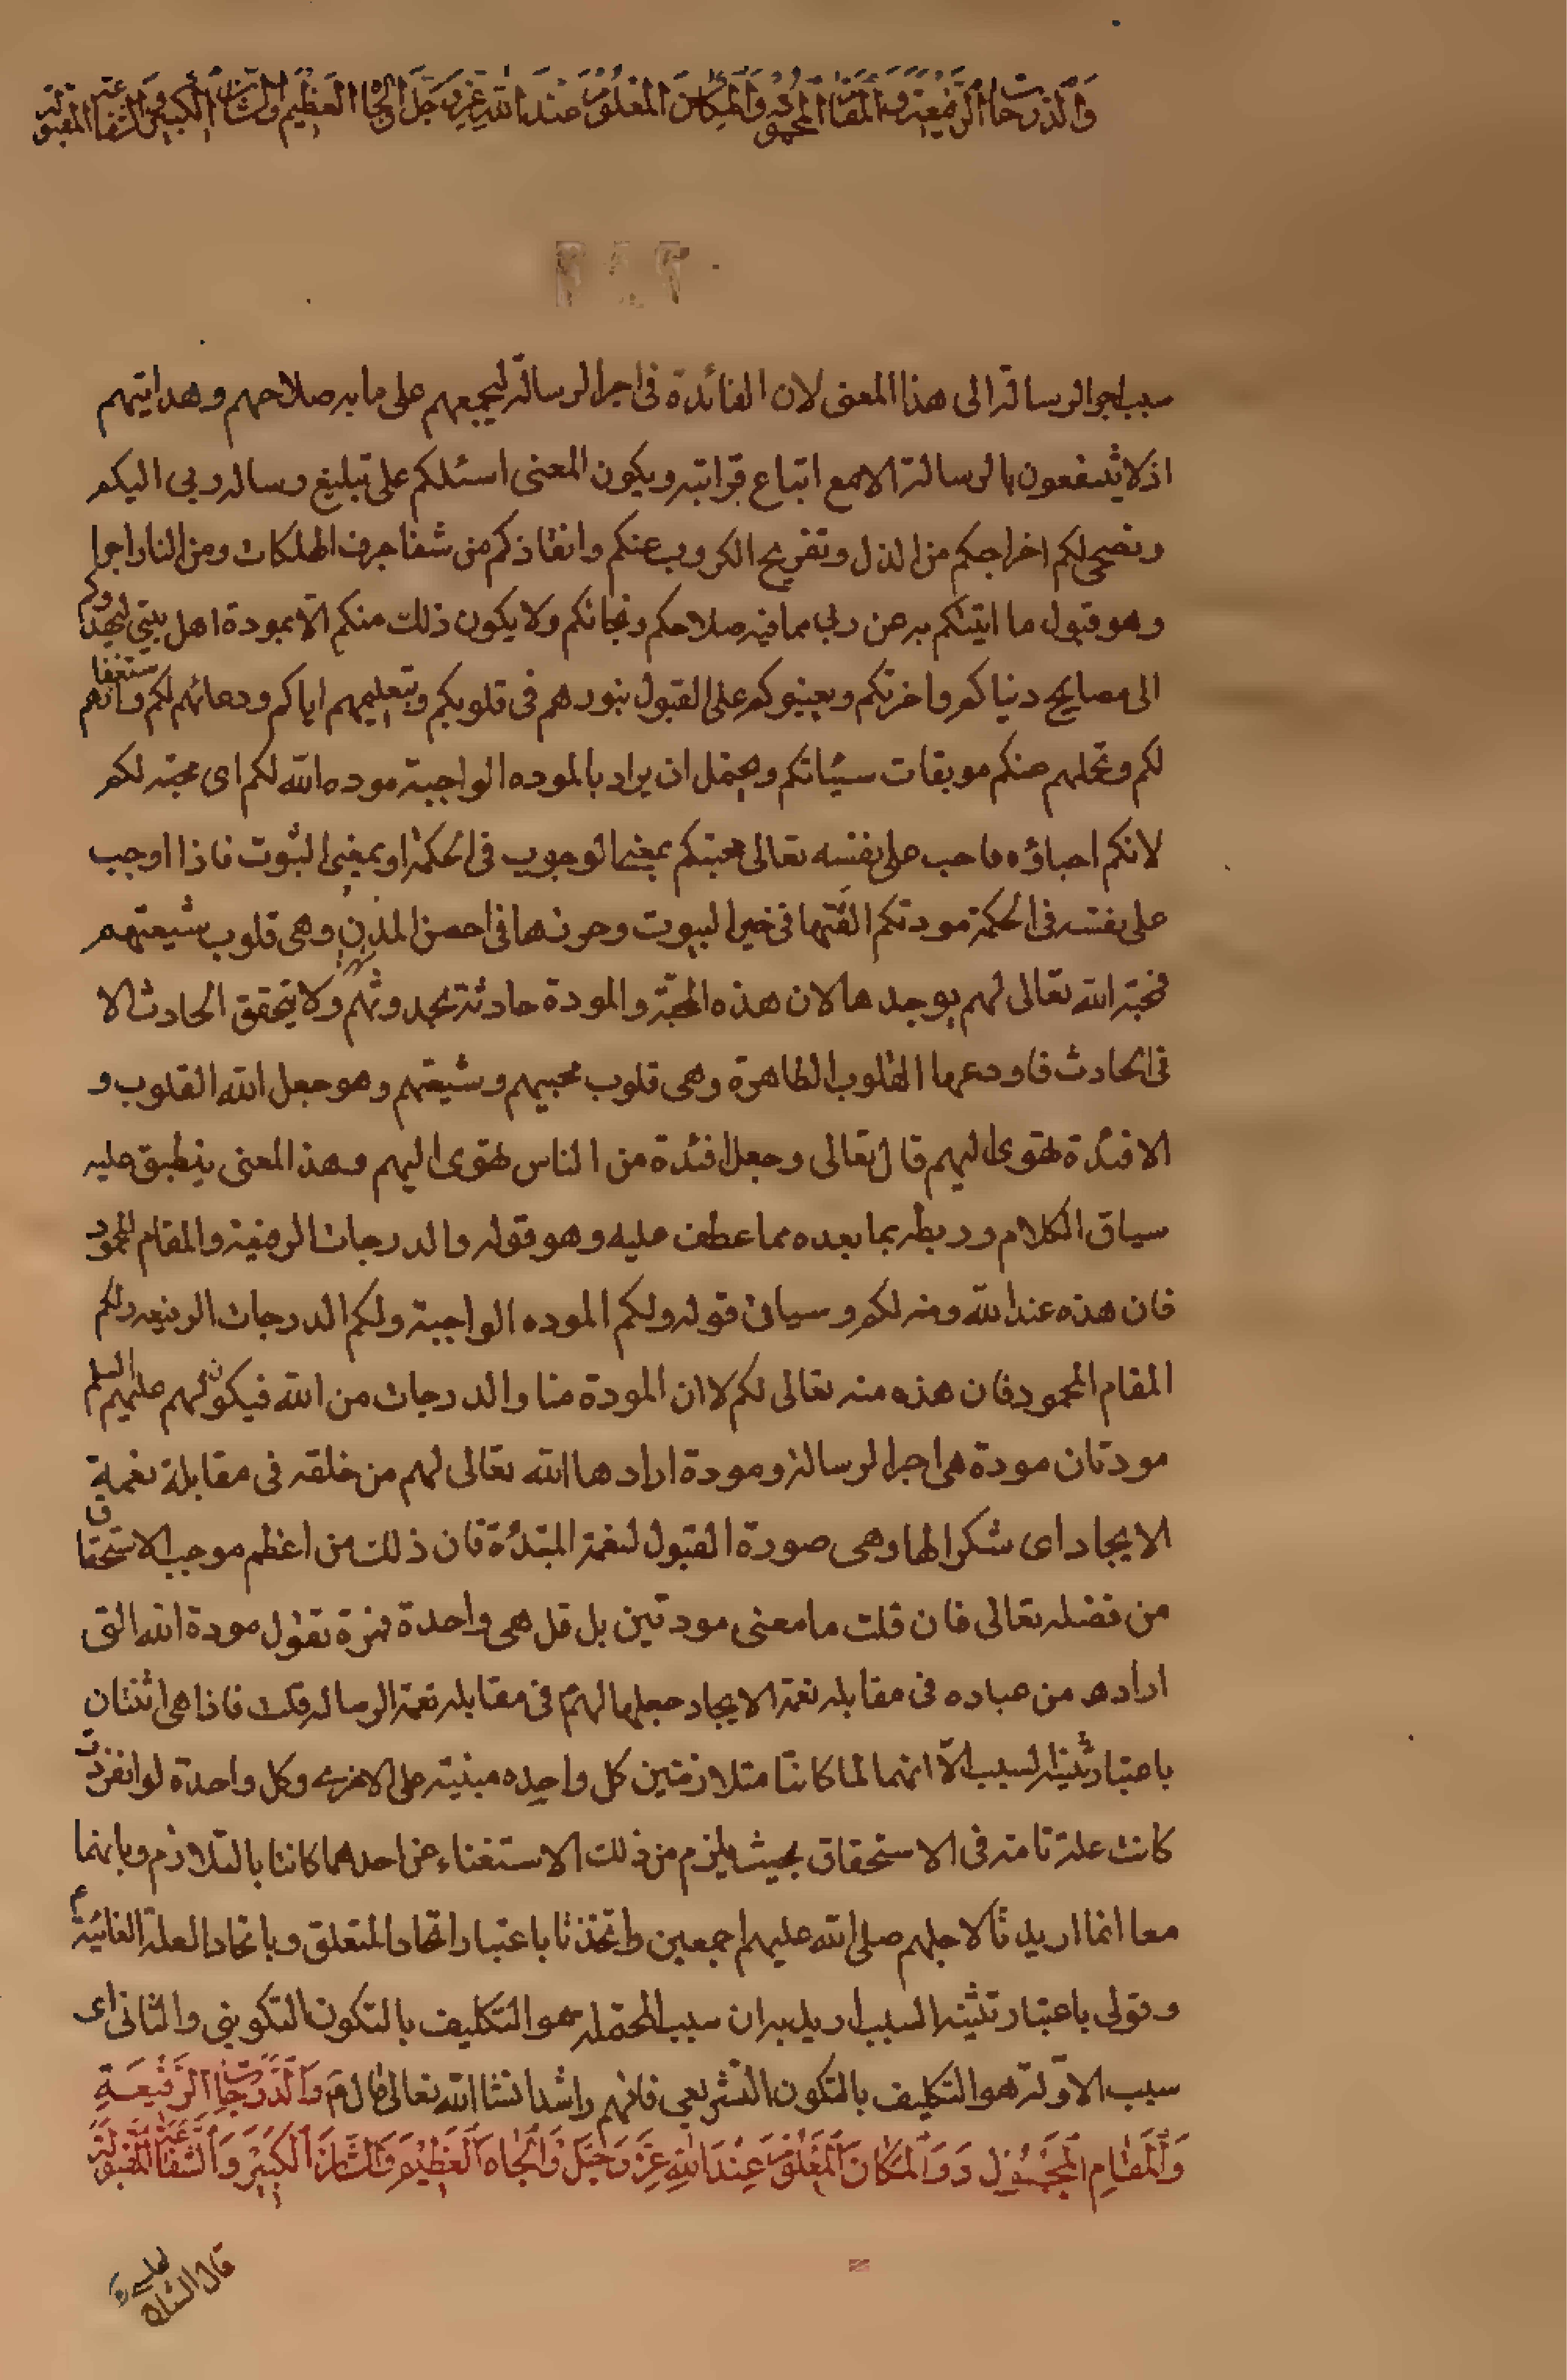 والدرجات الرفيعة والمقام المحمود والمكان المعلوم عند الله عز وجل والجاه العظيم والشان الكبير والشفاعة المقبولة
سبب اجر الرسالة الى هذا المعنى لان الفائدة فى اجر الرسالة ليجمعهم على ما به صلاحهم وهدايتهم
اذ لا ينتفعون بالرسالة الا مع اتباع قرابته ويكون المعنى اسئلكم على تبليغ رساله ربى اليكم
ونصحى لكم اخراجكم من الذل وتفريج الكروب عنكم وانقاذكم من شفا جرف الهلكات ومن النار اجرا
وهو قبول ما اتيتكم به عن ربى مما فيه صلاحكم ونجاتكم ولا يكون ذلك منكم الا بمودة اهل بيتى ليهدوكم
الى مصالح دنياكم واخرتكم ويعينوكم على القبول بنورهم فى قلوبكم وبتعليمهم اياكم ودعائهم لكم واستغفارهم
لكم وتحملهم عنكم موبقات سيئاتكم ويحتمل ان يراد بالموده الواجبة موده الله لكم اى محبته لكم
لانكم احباؤه فاحب على نفسه تعالى محبتكم بمعنى الوجوب فى الحكمة او بمعنى الثبوت فاذا اوجب
على نفسه فى الحكمة مودتكم القتها فى خير البيوت وحرزها فى احصن المدن وهى قلوب شيعتهم
فمحبة الله تعالى لهم يوجدها لان هذه المحبة والمودة حادثة بحدوثهم ولا يتحقق الحادث الا
فى الحادث فاودعها القلوب الطاهرة وهى قلوب محبيهم وشيعتهم وهو جعل الله القلوب و
الافئدة تهوى اليهم قال تعالى وجعل افئدة من الناس تهوى اليهم وهذا المعنى ينطبق عليه
سياق الكلام وربطه بما بعده مما عطف عليه وهو قوله والدرجات الرفيعة والمقام المحمود
فان هذه عند الله ومنه لكم وسياق قوله ولكم الموده الواجبة ولكم الدرجات الرفيعه ولكم
المقام المحمود فان هذه منه تعالى لكم لا ان المودة منا والدرجات من الله فيكون لهم عليهم السلم
مودتان مودة هى اجر الرسالة ومودة ارادها الله تعالى لهم من خلقه فى مقابلة نعمة
الايجاد اى شكرا لها وهى صورة القبول لنعمة المبتدئة فان ذلك من اعظم موجب الاستحقاق
من فضله تعالى فان قلت ما معنى مودتين بل قل هى واحدة فمرة تقول مودة الله التى
ارادها من عباده فى مقابله نعمة الايجاد جعلها لهم فى مقابله نعمة الرساله قلت فاذا هى اثنتان
باعتبار تثنية السبب الا انهما لما كانتا متلازمتين كل واحده مبنية على الاخرى وكل واحدة لو انفردت
كانت علة تامة فى الاستحقاق بحيث يلزم من ذلك الاستغناء عن احدهما كانتا بالتلازم وبانهما
معا انما اريدتا لاجلهم صلى الله عليهم اجمعين واتحذتا باعتبار اتحاد المتعلق وباتحاد العلة الغائية
وقولى باعتبار تثنية السبب اريد به ان سبب المحتمله هو التكليف بالتكون التكوينى والثانى اى
سبب الاولة هو التكليف بالتكون التشريعى فافهم راشدا انشا الله تعالى قال م والدرجات الرفيعة
والمقام المحمود والمكان المعلوم عند الله عز وجل والجاه العظيم والشان الكبير والشفاعة المقبولة
قال الشارح